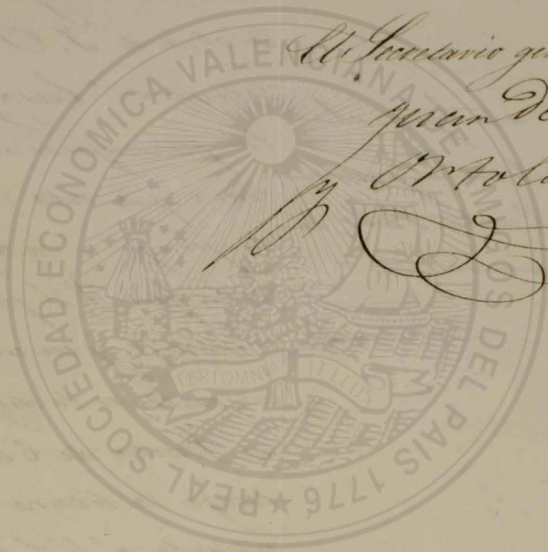 El Secretario gen
Juan De
y Ortola
REAL SOCIEDAD ECONOMICA VALENCIANA DE AMIGOS DEL PAIS 1776 ★
FERT OMNIA TELLUS